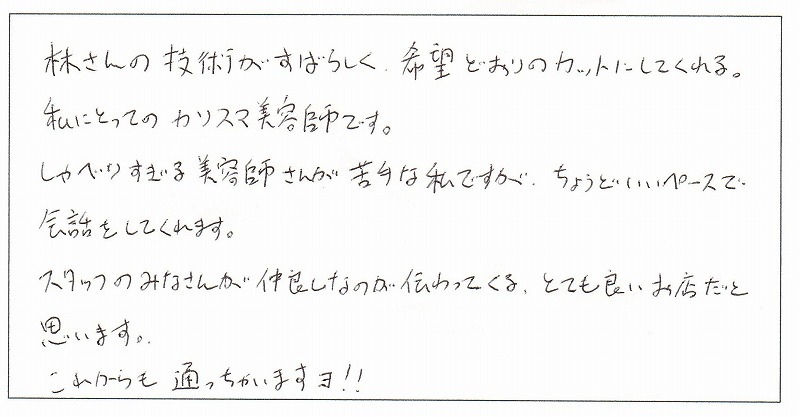 林さんの技術がすばらしく、希望どおりのカットにしてくれる。
私にとってのカリスマ美容師です。
しゃべりすぎる美容師さんが苦手な私ですが、ちょうどいいペースで
会話をしてくれます。
スタッフのみなさんが仲良しなのが伝わってくる、とても良いお店だと
思います。
これからも通っちゃいますヨ!!